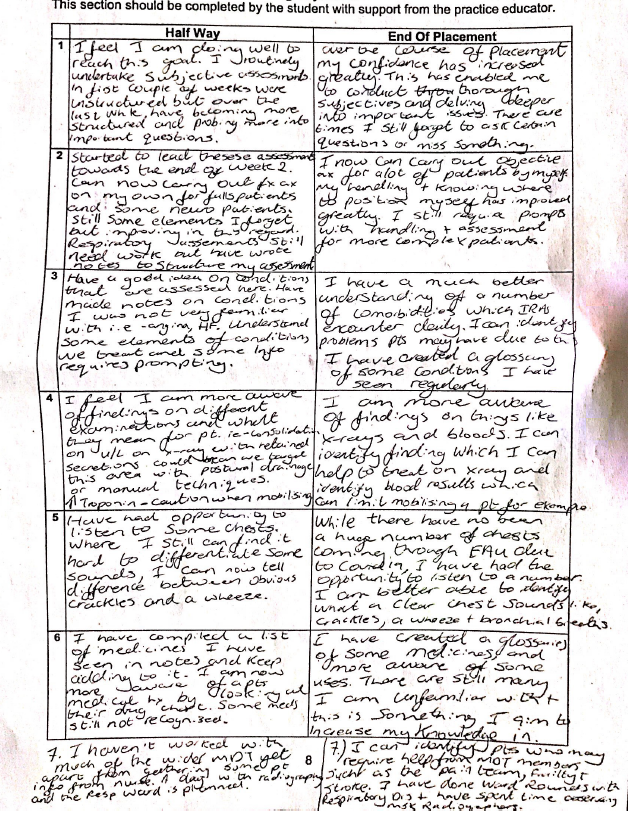 This section should be completed by the student with support from the practice educator.
Half Way
End Of Placement
1
I feel I am doing well to
reach this goal. I routinely
undertake subjective assessments.
In first couple of weeks were
unstructured but over the
last while, have becoming more
structured and probing more into
important questions.
over the course of Placement
my confidence has increased
greatly. This has enabled me
to conduct thorough
subjectives and delving deeper
into important issues. There are
times I still forget to ask certain
questions or miss something.
2
Started to lead these assessment
towards the end of week 2.
Can now carry out fx ax
on my own for falls patients
and some neuro patients.
Still some elements I forget
but improving in this regard.
Respiratory assements still
need work but have wrote
notes to structure my assessment
I now can carry out objective
ax for alot of patients by myself
My handling + knowing where
to position myself has improved
greatly. I still require pompts
with handling + assessment
for more complex patients.
3
Have a good idea on conditions
that are assessed here. Have
made notes on conditions
I was not very familiar
with i.e - angina, HF. Understand
some elements of conditions
we treat and some info
requires prompting.
I have a much better
understanding of a number
of comorbidities which
encounter daily. I can identify
problems pts may have due to
I have created a glossary
of some conditions I have
seen regularly
4
I feel I am more aware
of findings on different
examinations and what
they mean for pt. ie - consolidation
on u/L on x-ray with retained
secretions. could we target
this area with postural drainage
or manual techniques.
↑ Troponin - caution when mobilising
I am more aware
of findings on things like
x-rays and bloods. I can
identify finding which I can
help to treat on xray and
identify blood results which
can limit mobilising a pt for example
5
Have had opportunity to
listen to some chests.
Where I still can find it
hard to differentiate some
sounds, I can now tell
difference between obvious
crackles and a wheeze.
While there have no been
a huge number of chests
coming through EAU due
to Covid, I have had the
opportunity to listen to a number.
I am better able to identify
what a clear chest sounds like,
crackles, a wheeze + bronchial breaths.
6
I have compiled a list
of medicines I have
seen in notes and keep
adding to it. I am now
more aware of a pts
medical hx by looking at
their drug chart. Some meds
still not recognised.
I have created a glossaries
of some medicines and
more aware of some
uses. There are still many
I am unfamiliar with +
this is something I aim to
increase my knowledge in.
7. I haven't worked with
much of the wider MDT yet
apart from gathering some pt
info from nurse. A day with radiography
and the Resp ward is planned.
8
7) I can identify pts who may
require help from MDT members
such as the pain team, frailty +
stroke. I have done ward Rounds with
Respiratory + have spent time observing
msk Radiographers.